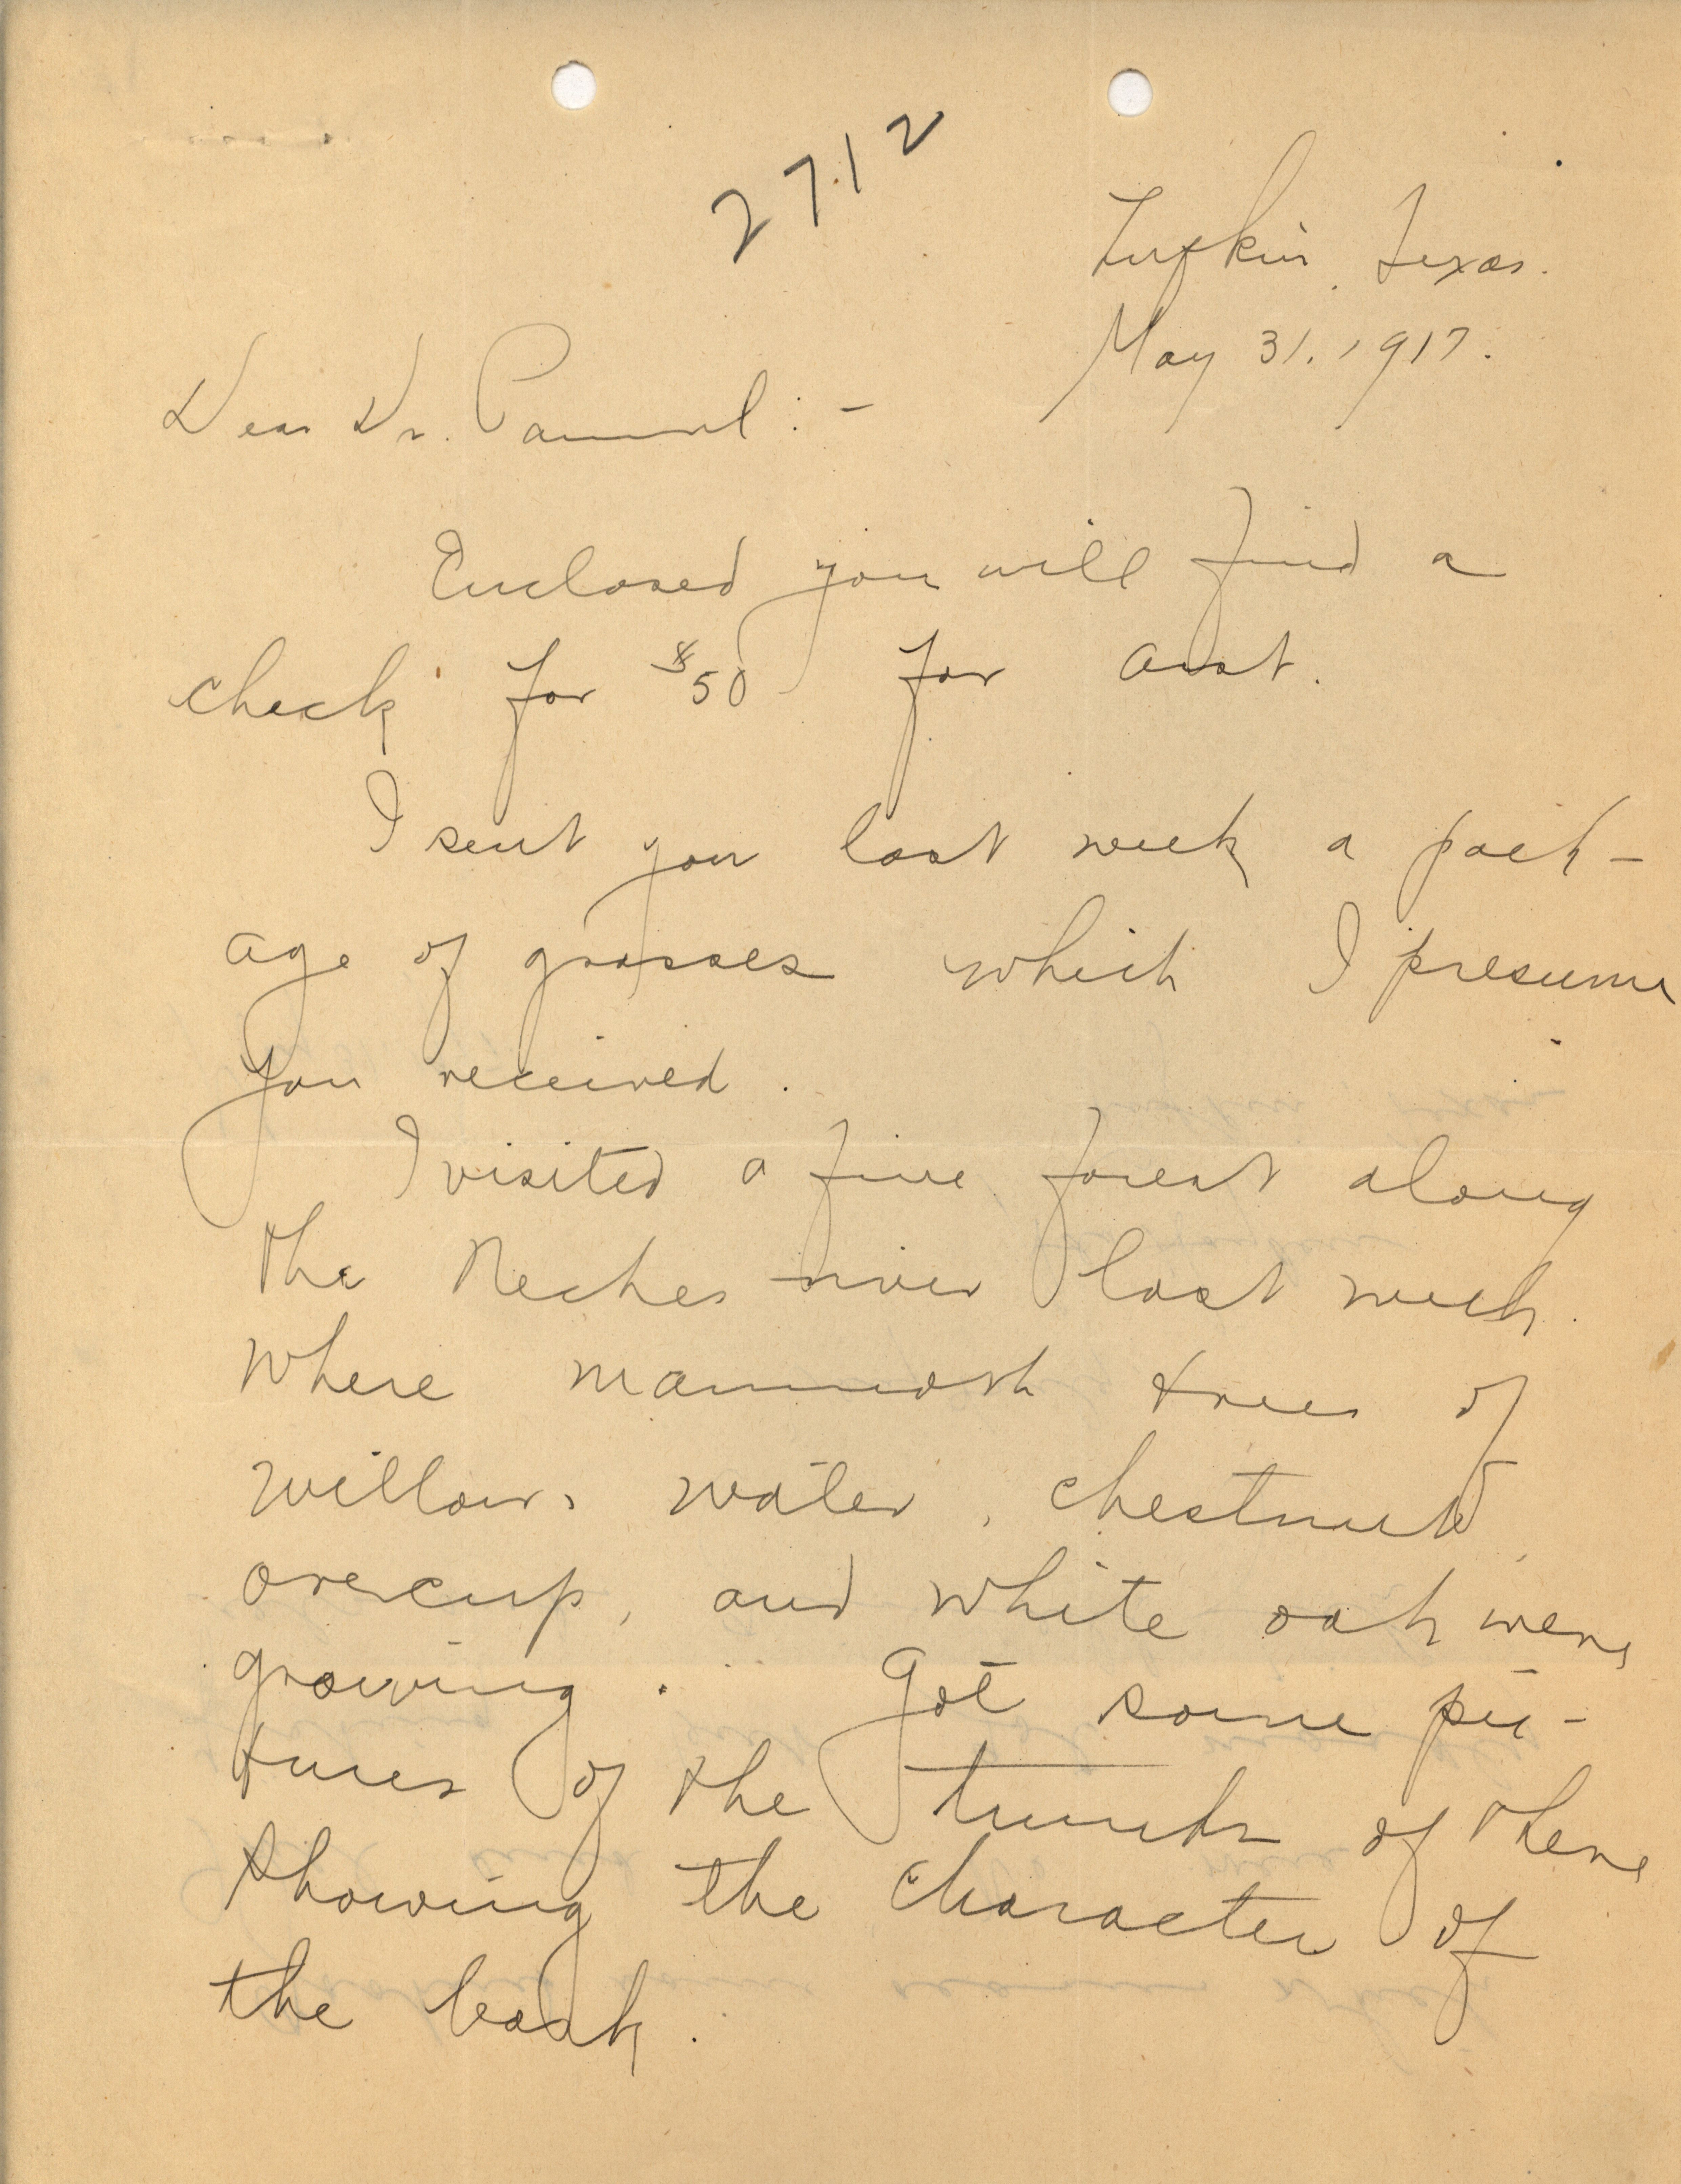 2712
Lufkin, Texas.
May 31, 1917.
Dear Dr. Pammel:-
Enclosed you will find a
check for $50 for acct.
I sent you last week a pack-
age of grasses which I presume
you received.
I visited a fine forest along
the Neches river last week.
where mammoth trees of
willow, water, chestnut,
overcup, and white oak were
growing. Got some pic-
tures of the trunks of these
showing the character of
the bark.